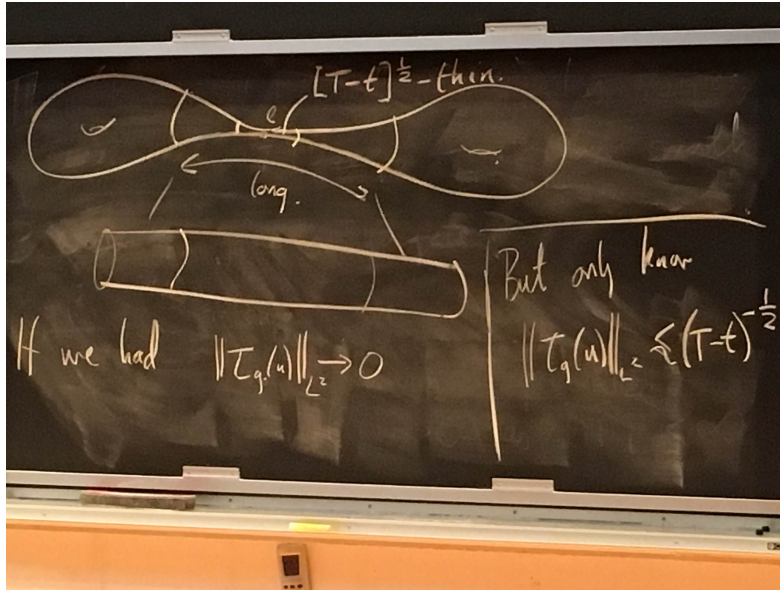 [T-t]^{1/2}-thin.
e
long.
If we had ||τ_g(u)||_{L^2} → 0
But only know
||τ_g(u)||_{L^2} ≤ (T-t)^{-1/2}